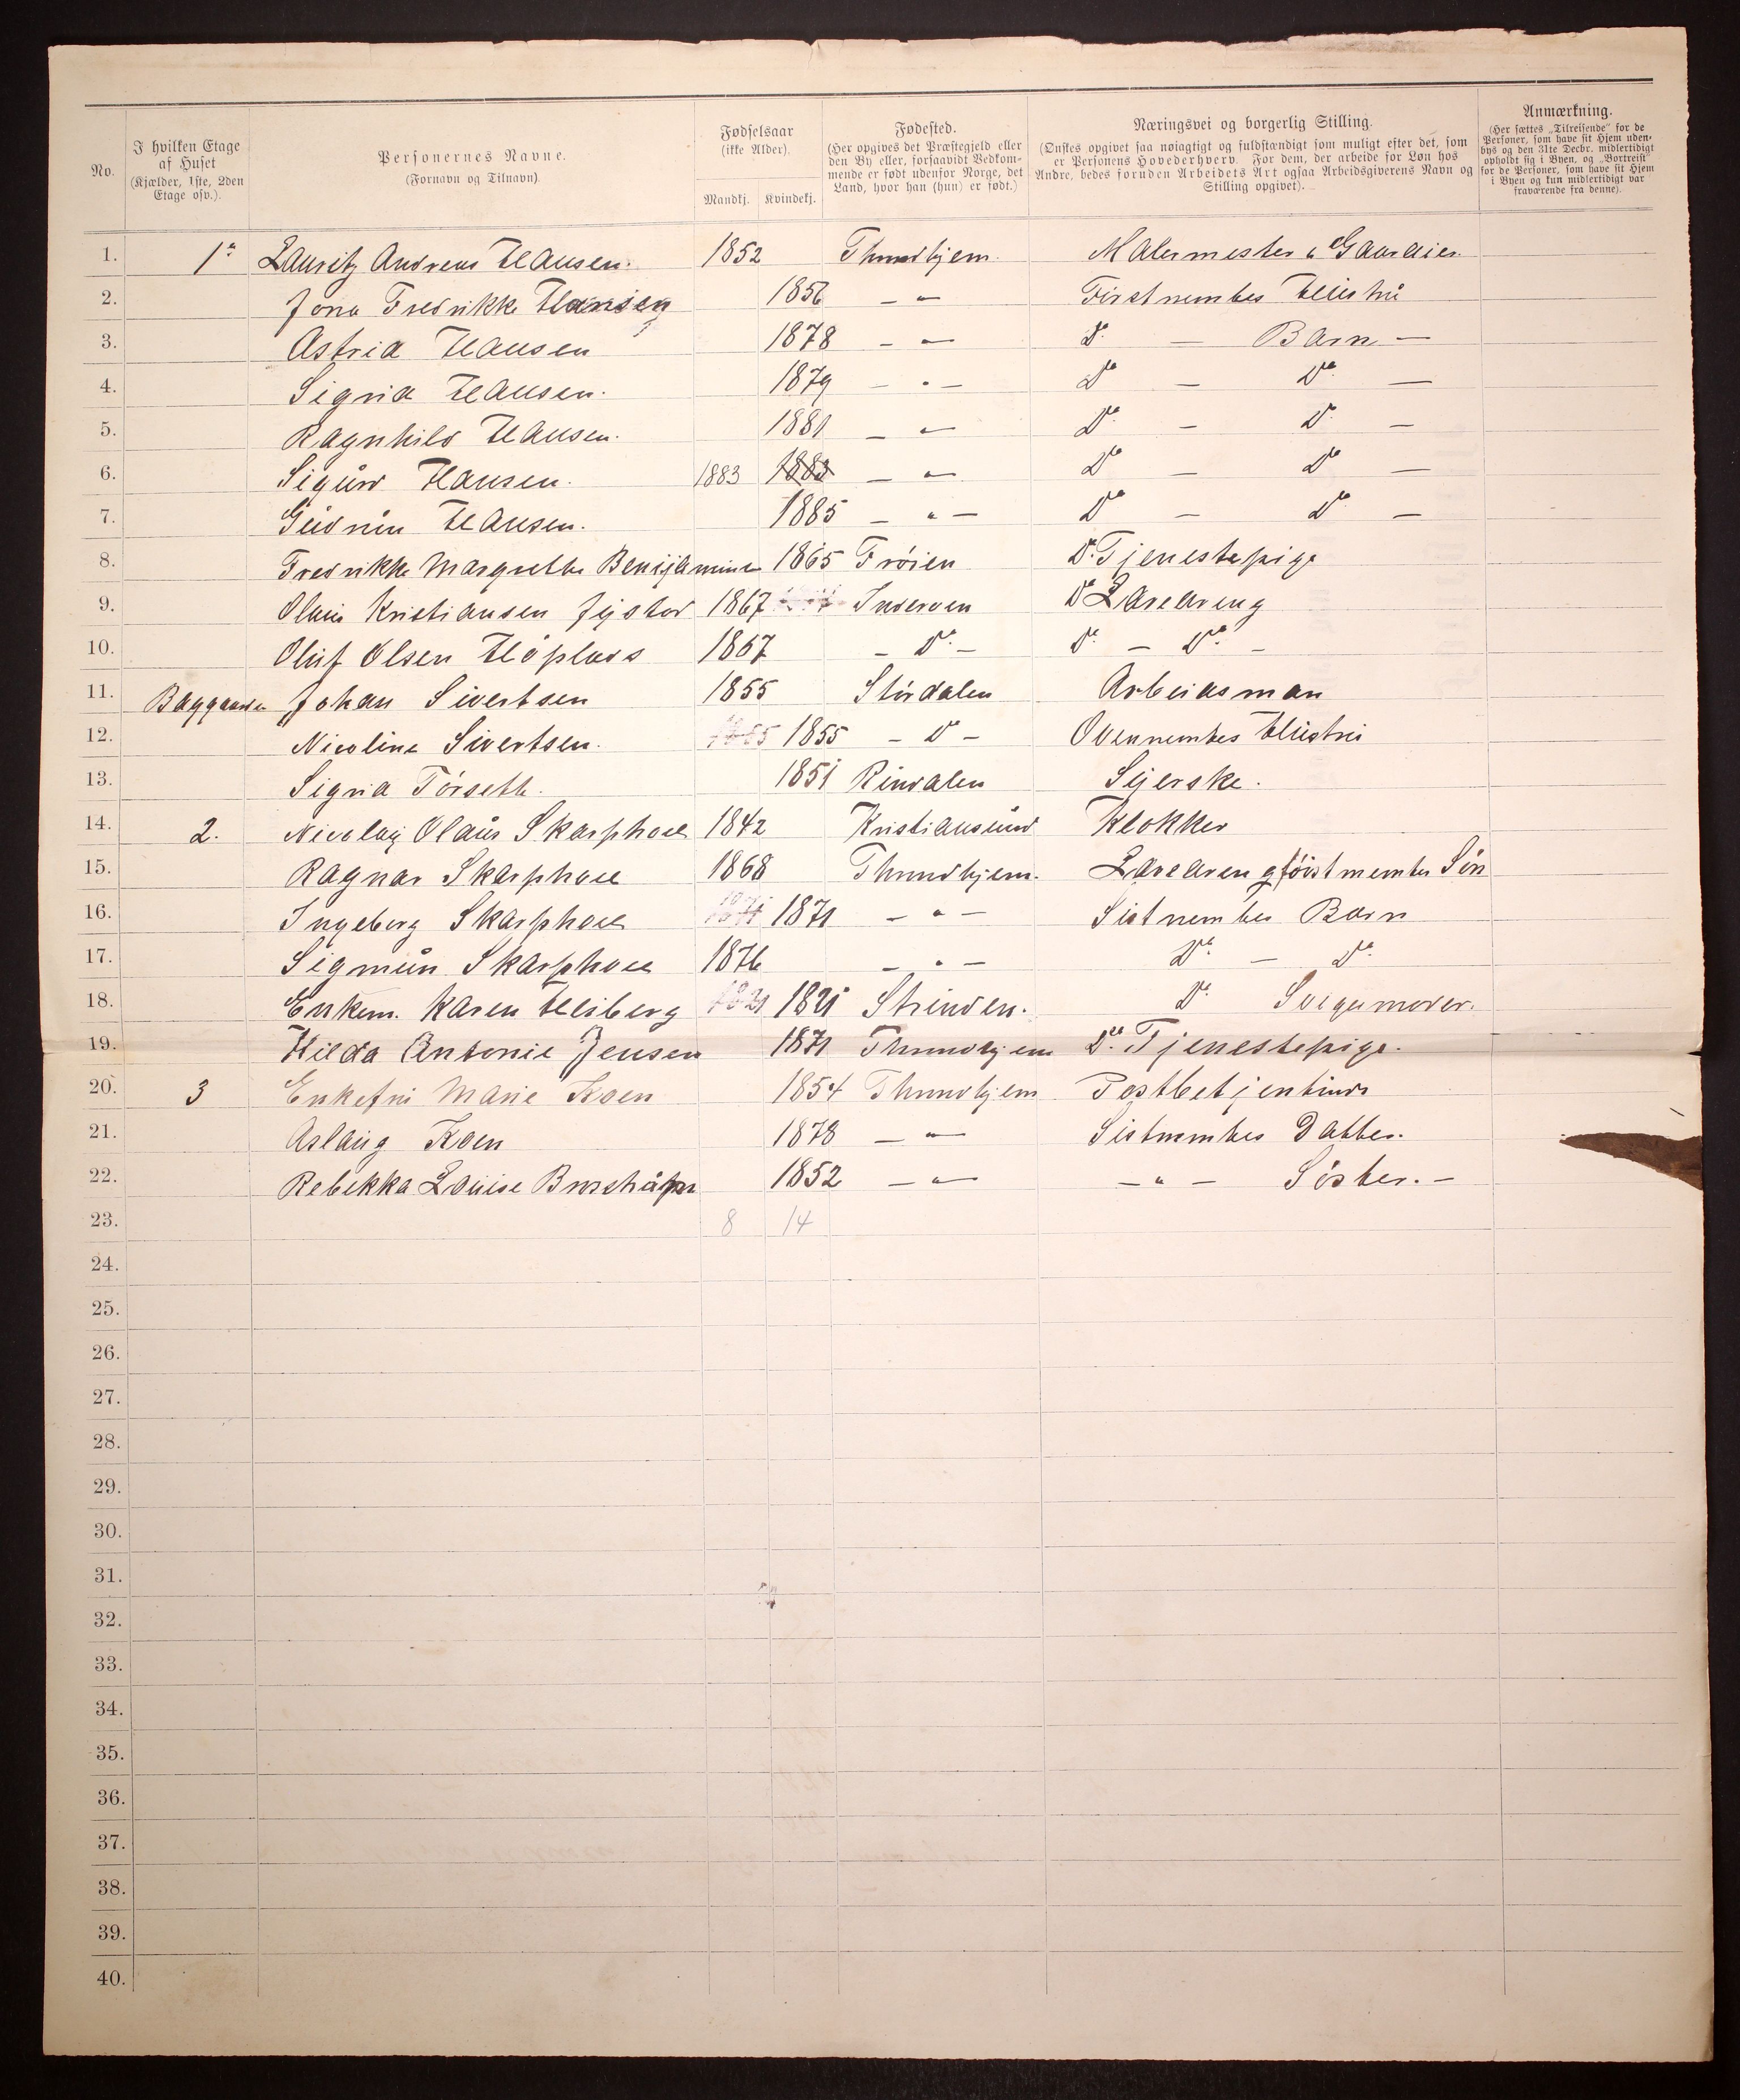 No.
I hvilken Etage
af Huset
(Kjælder, 1ste, 2den
Etage osv.).
Personernes Navne.
(Fornavn og Tilnavn)
Fødselsaar
(ikke Alder).
Mandkj. Kvindekj.
Fødested.
(Her opgives det Præstegjeld eller
den By eller, forsaavidt Vedkom-
mende er født udenfor Norge, det
Land, hvor han (hun) er født.)
Næringsvei og borgerlig Stilling.
(Ønskes opgivet saa nøiagtigt og fuldstændigt som muligt efter det, som
er Personens Hovederhverv. For dem, der arbeide for Løn hos
Andre, bedes foruden Arbeidets Art ogsaa Arbeidsgiverens Navn og
Stilling opgivet).
Anmærkning.
(Her sættes „Tilreisende" for de
Personer, som have sit Hjem uden-
bys og den 31te Decbr. midlertidigt
opholdt sig i Byen, og „Bortreist"
for de Personer, som have sit Hjem
i Byen og kun midlertidigt var
fraværende fra denne).
1. 1ª Lauritz Andreas Hansen. 1852 Throndhjem. Malermester & Gaardeier.
2. Jona Fredrikke Hansen 1856 — " — Førstnemtes Hüstrü
3. Astrid Hansen 1878 — " — Dº — Barn —
4. Sigrid Hansen. 1879 — " — Dº — Dº —
5. Ragnhild Hansen. 1881 — " — Dº — Dº —
6. Sigürd Hansen. 1883 1883 — " — Dº — Dº —
7. Güdrün Hansen. 1885 — " — Dº — Dº —
8. Fredrikke Margrethe Benijamine 1865 Frøien Dº Tjenestepige
9. Olaus Kristiansen 1867 Inderøen Dº Læredreng
10. Olüf Olsen Høplass 1867 — Dº — Dº — Dº —
11. Baggaarden Johan Sivertsen 1855 Stördalen Arbeidsman
12. Nicoline Sivertsen. 1855 1855 — D — Ovennemtes Hüstrü
13. Sigrid Törseth. 1851 Rindalen Syerske.
14. 2. Nicolay Olaüs Skarphoel 1842 Kristiansünd Klokker
15. Ragnar Skarphoel 1868 Throndhjem. Læredreng förstnemtes Sön
16. Ingeborg Skarphoel 1871 1871 — " — Sistnemtes Barn
17. Sigmün Skarphoel 1876 — " — Dº — Dº
18. Enkem. Karen Heiberg 1821 1821 Strinden. Dº Svigermoder.
19. Hilda Antonie Jensen 1871 Throndhjem Dº Tjenestepige.
20. 3 Enkefrü Marie Koen 1854 Throndhjem Postbetjentinde
21. Aslaüg Koen 1878 — " — Sistnemtes Datter.
22. Rebekka Loüise 1852 — " — — " — Söster. —
23. 8 14
24.
25.
26.
27.
28.
29.
30.
31.
32.
33.
34.
35.
36.
37.
38.
39.
40.